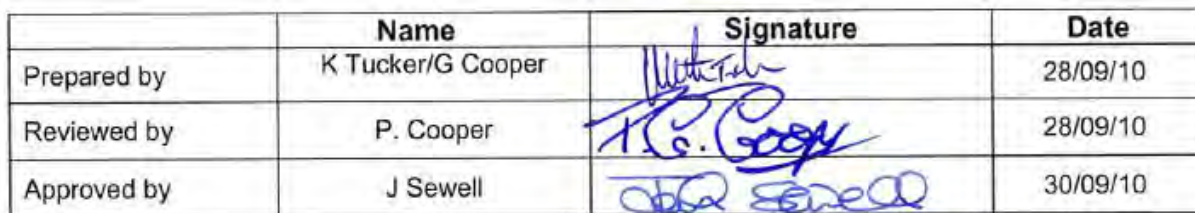 Name Signature Date
Prepared by K Tucker/G Cooper 28/09/10
Reviewed by P. Cooper Cooper 28/09/10
Approved by J Sewell Sewell 30/09/10